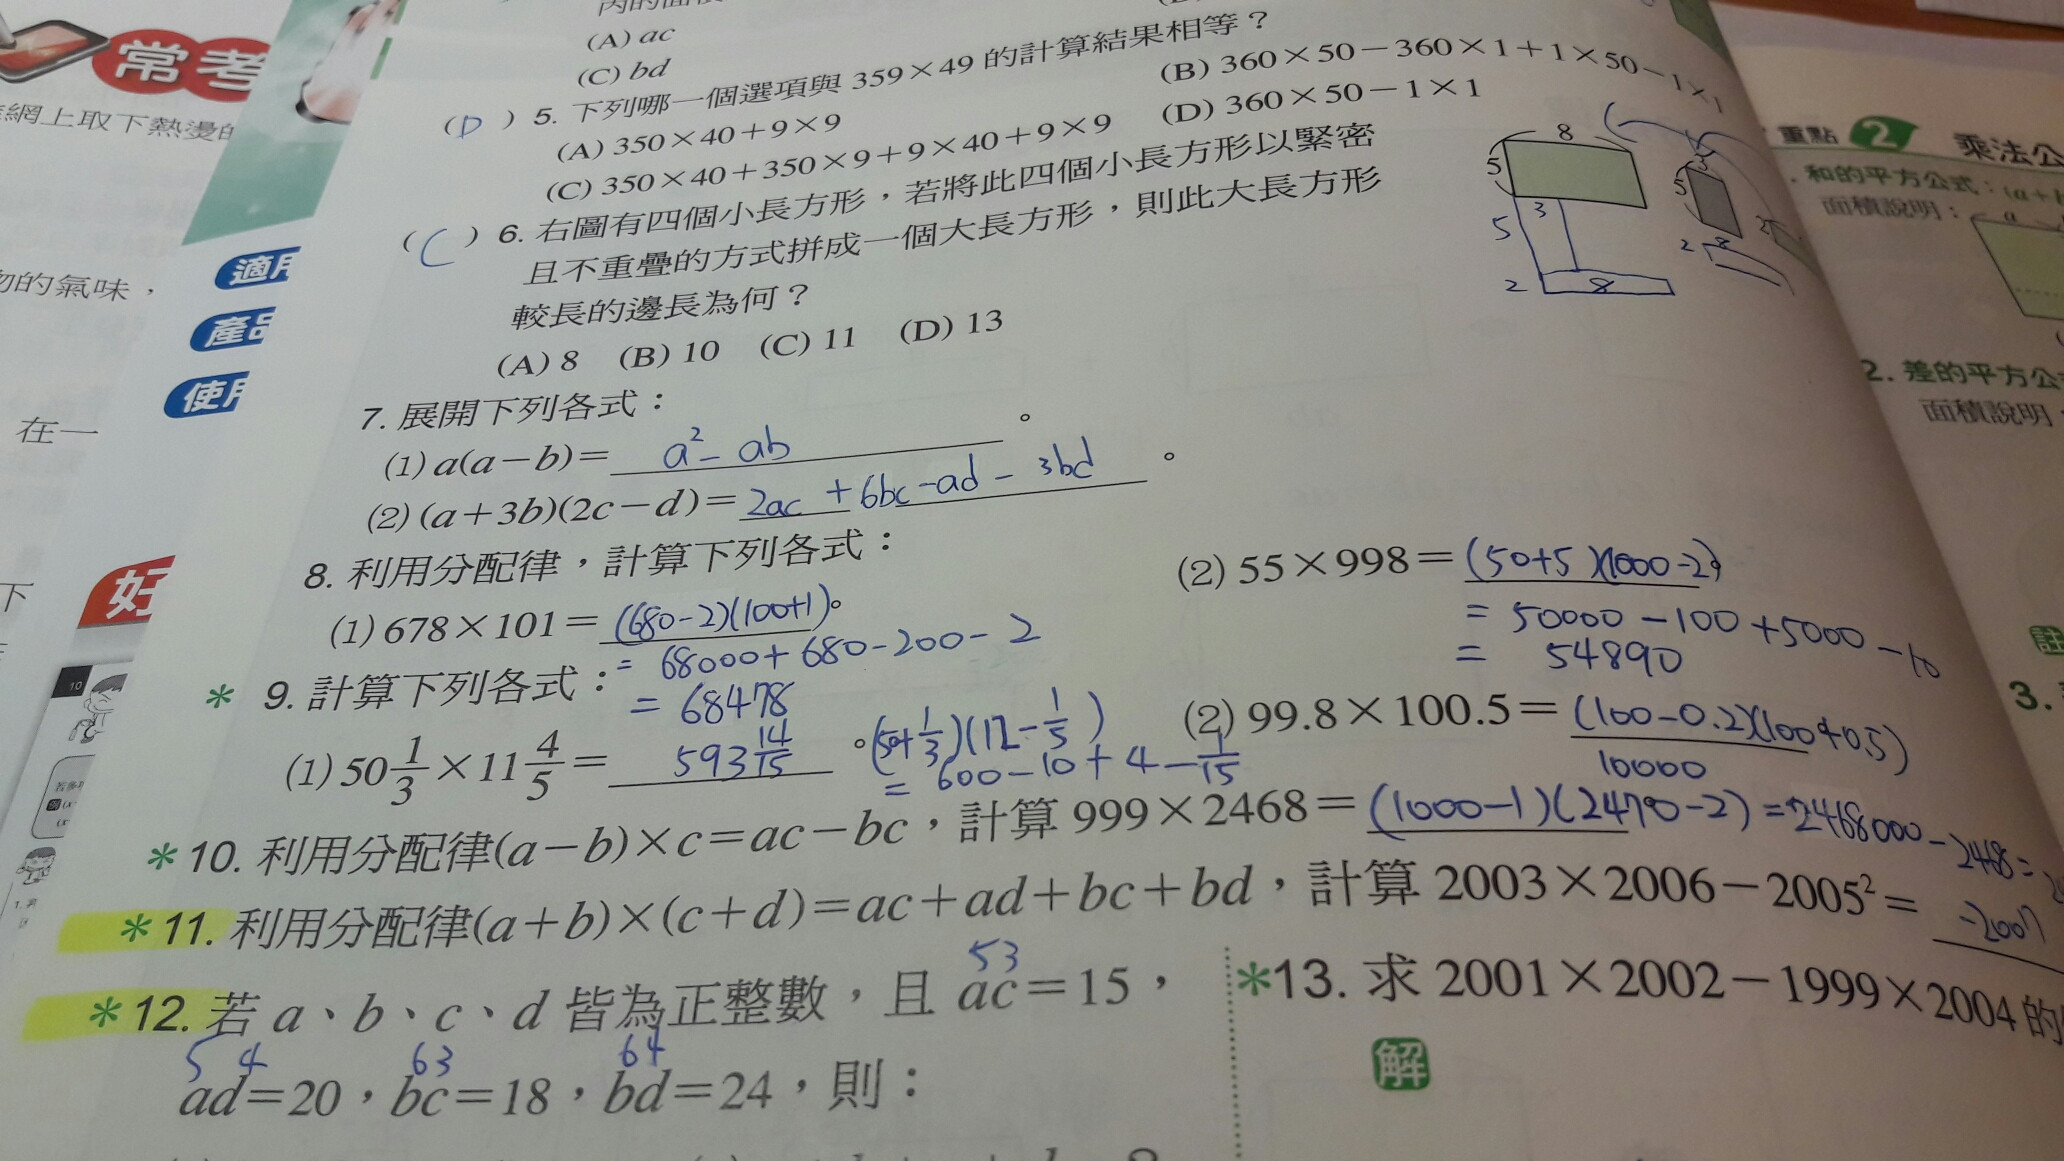 常考
(A) ac
(C) bd
網上取下熱燙的
(D) 5. 下列哪一個選項與 359×49 的計算結果相等？
(A) 350×40+9×9
(B) 360×50−360×1+1×50−1×1
(C) 350×40+350×9+9×40+9×9
(D) 360×50−1×1
(C) 6. 右圖有四個小長方形，若將此四個小長方形以緊密
且不重疊的方式拼成一個大長方形，則此大長方形
較長的邊長為何？
(A) 8 (B) 10 (C) 11 (D) 13
8
5
3
5
2
8
5
2
適用
產品
使用
的氣味，
在一
下
好
7. 展開下列各式：
(1) a(a−b)= a²−ab 。
(2) (a+3b)(2c−d)= 2ac+6bc−ad−3bd 。
8. 利用分配律，計算下列各式：
(1) 678×101= (680−2)(100+1)。
= 68000+680−200−2
= 68478
(2) 55×998= (50+5)(1000−2)。
= 50000−100+5000−10
= 54890
* 9. 計算下列各式：
(1) 50 1/3 × 11 4/5 = 593 14/15 。(50+1/3)(12−1/5)
= 600−10+4−1/15
(2) 99.8×100.5= (100−0.2)(100+0.5)
10000
*10. 利用分配律(a−b)×c=ac−bc，計算 999×2468= (1000−1)(2470−2) =2468000−2468=
*11. 利用分配律(a+b)×(c+d)=ac+ad+bc+bd，計算 2003×2006−2005²= −2007
*12. 若 a、b、c、d 皆為正整數，且 ac=15，
53
ad=20，bc=18，bd=24，則：
5 4
63
64
*13. 求 2001×2002−1999×2004 的
解
重點 2 乘法公
和的平方公式：(a+b
面積說明：
a
2. 差的平方公
面積說明
註
3.
10